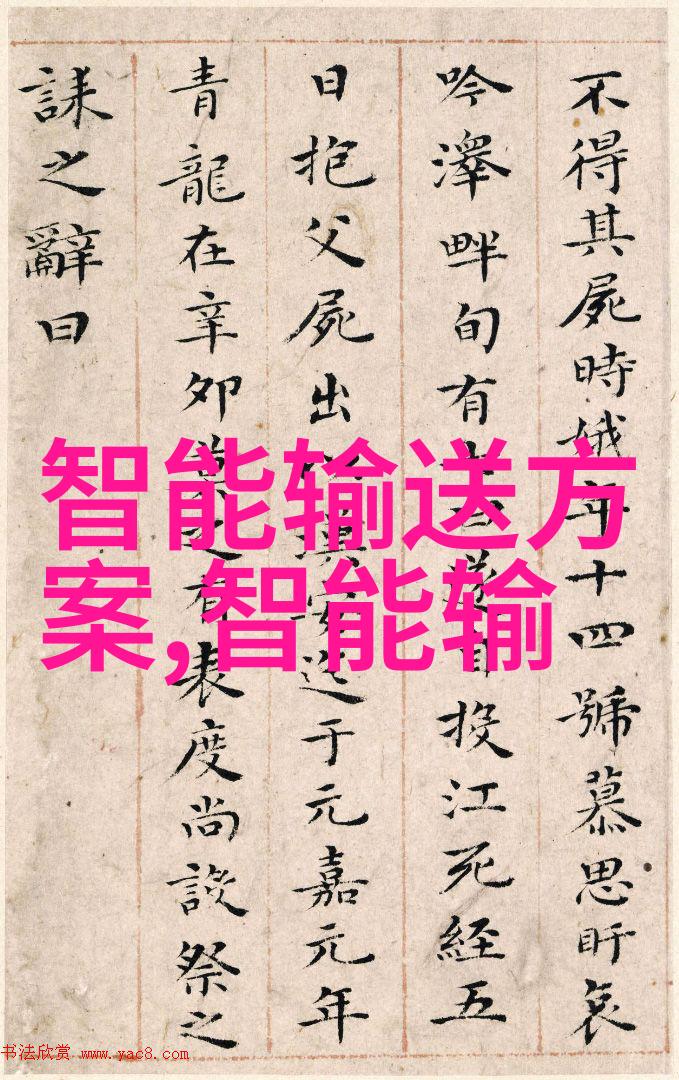 不得其屍時娥年十四號慕思盱哀
吟澤畔旬有七日遂自投江死經五
日抱父屍出以漢安迄于元嘉元年
青龍在辛卯莫之有表度尚設祭之
誄之辭曰
智能输送方
案,智能输
书法欣赏 www.yac8.com